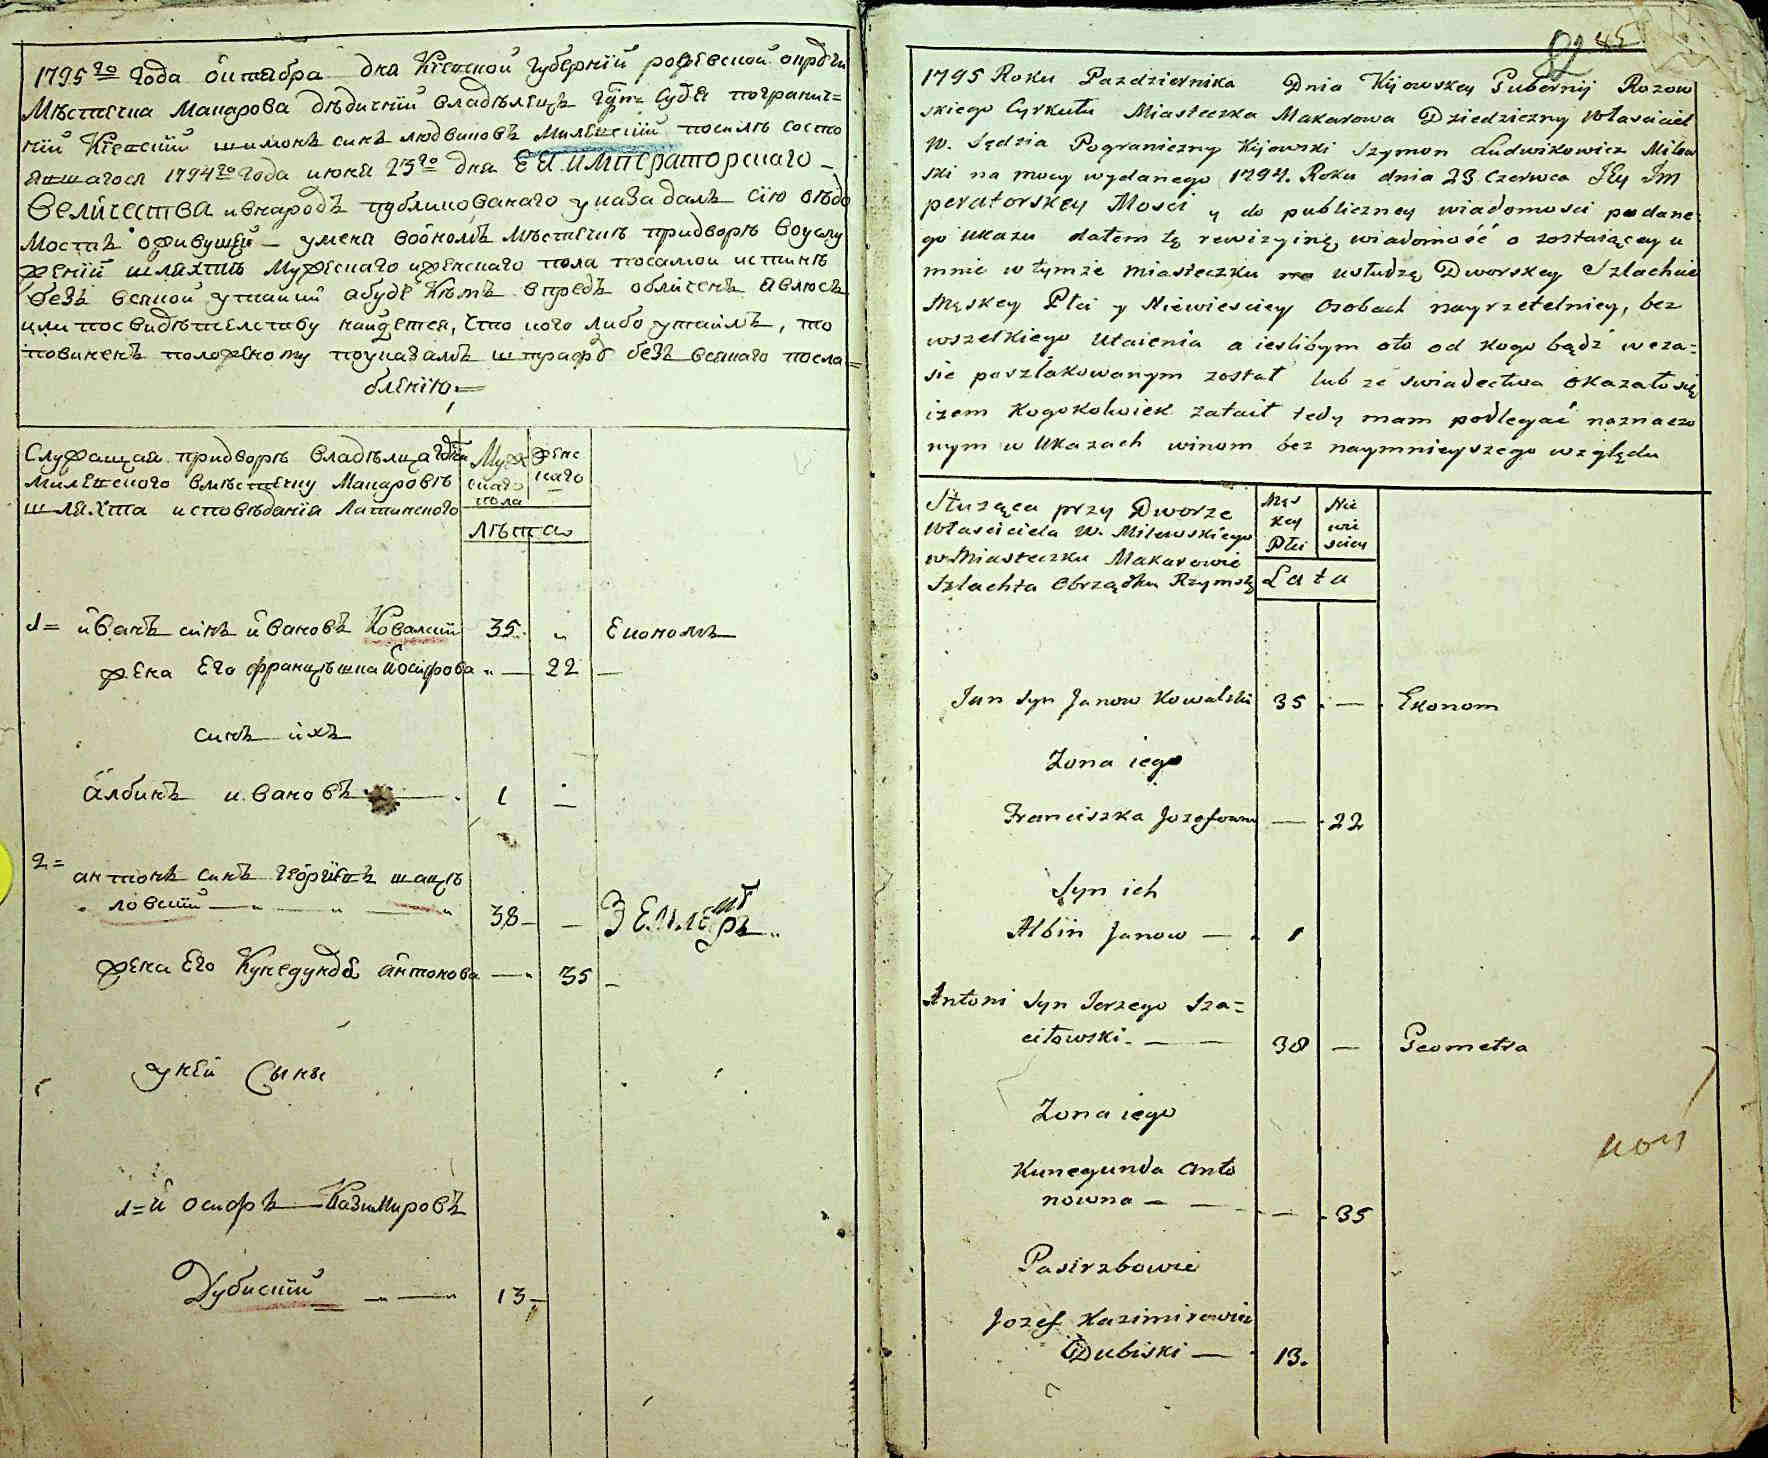 1795го года октября дня Киевской губернии рожевской округи
Мѣстечка Макарова дѣдичний владѣлецъ судья погранич=
ний Киевский шимонъ синъ людвиковъ Милевский посилѣ состо
явшагося 1794го года июня 23го дня ЕЯ императорского
Величества ивнародъ публикованаго указа далъ сію вѣдо
мость оживущей умена во ономъ мѣстечкѣ придворѣ воуслу
жений шляхтѣ Мужескаго иженскаго пола посамой истинѣ
безъ всякой утайки абуде кѣмъ впредь обличенъ явлюсь
или посвидѣтелству найдется, что кого либо утаилъ, то
повиненъ положеному поуказамъ штрафу безъ всякаго посла=
бленію
Служащая придворѣ владѣлца
Милевского вмѣстечку Макаровѣ
шляхта исповѣданія Латинского
Муж
скаго
пола
женс
каго
лѣта
1= иванъ синъ ивановъ Ковалский 35 „ Економъ
жена Его францѣшка иосифова „ — 22 —
синъ ихъ
албинъ ивановъ — 1 —
2=
антонъ синъ георгіевъ шацѣ
ловский — „ — „ — „ 38 — — ЗЕмлемѣръ
жена Его Кунегунда антонова — „ 35 —
уней Сыны
1= иосифъ — Казимировъ
Дубиский „ — „ 13 —
82 45
1795 Roku Pazdziernika Dnia Kijowskey Gubernij Rozow
skiego Cyrkułu Miasteczka Makarowa Dziedziczny własciciel
W. Sędzia Pograniczny Kijowski Szymon Ludwikowicz Milew
ski na mocy wydanego 1794. Roku dnia 23 Czerwca Jey Jm
peratorskey Mosci y do publiczney wiadomosci podane
go Ukazu dałem tę rewizyiną wiadomość o zostaiącey u
mnie w tymże miasteczku na usłudze Dworskey Szlachcie
Męskey Płci y Niewiesciey Osobach nayrzetelniey, bez
wszelkiego Utaienia a ieslibym oto od kogo bądź wcza=
sie poszlakowanym został lub ze swiadectwa okazało się
iżem Kogokolwiek zataił tedy mam podlegać naznaczo
nym w Ukazach winom bez naymnieyszego względu
Służąca przy Dworze
własciciela W. Milewskiego
w Miasteczku Makarowie
Szlachta Obrządku Rzymsk
Męs
key
Płci
Nie
wie
sciey
Lata
Jan Syn Janow Kowalski 35 — Ekonom
Zona iego
Franciszka Jozefowna — 22
Syn ich
Albin Janow — 1
Antoni Syn Jerzego Sza=
ciłowski — — 38 — Geometra
Zona iego
Kunegunda Anto
nowna — — — 35
Pasirzbowie
Jozef Kazimirowicz
Dubiski — 13.